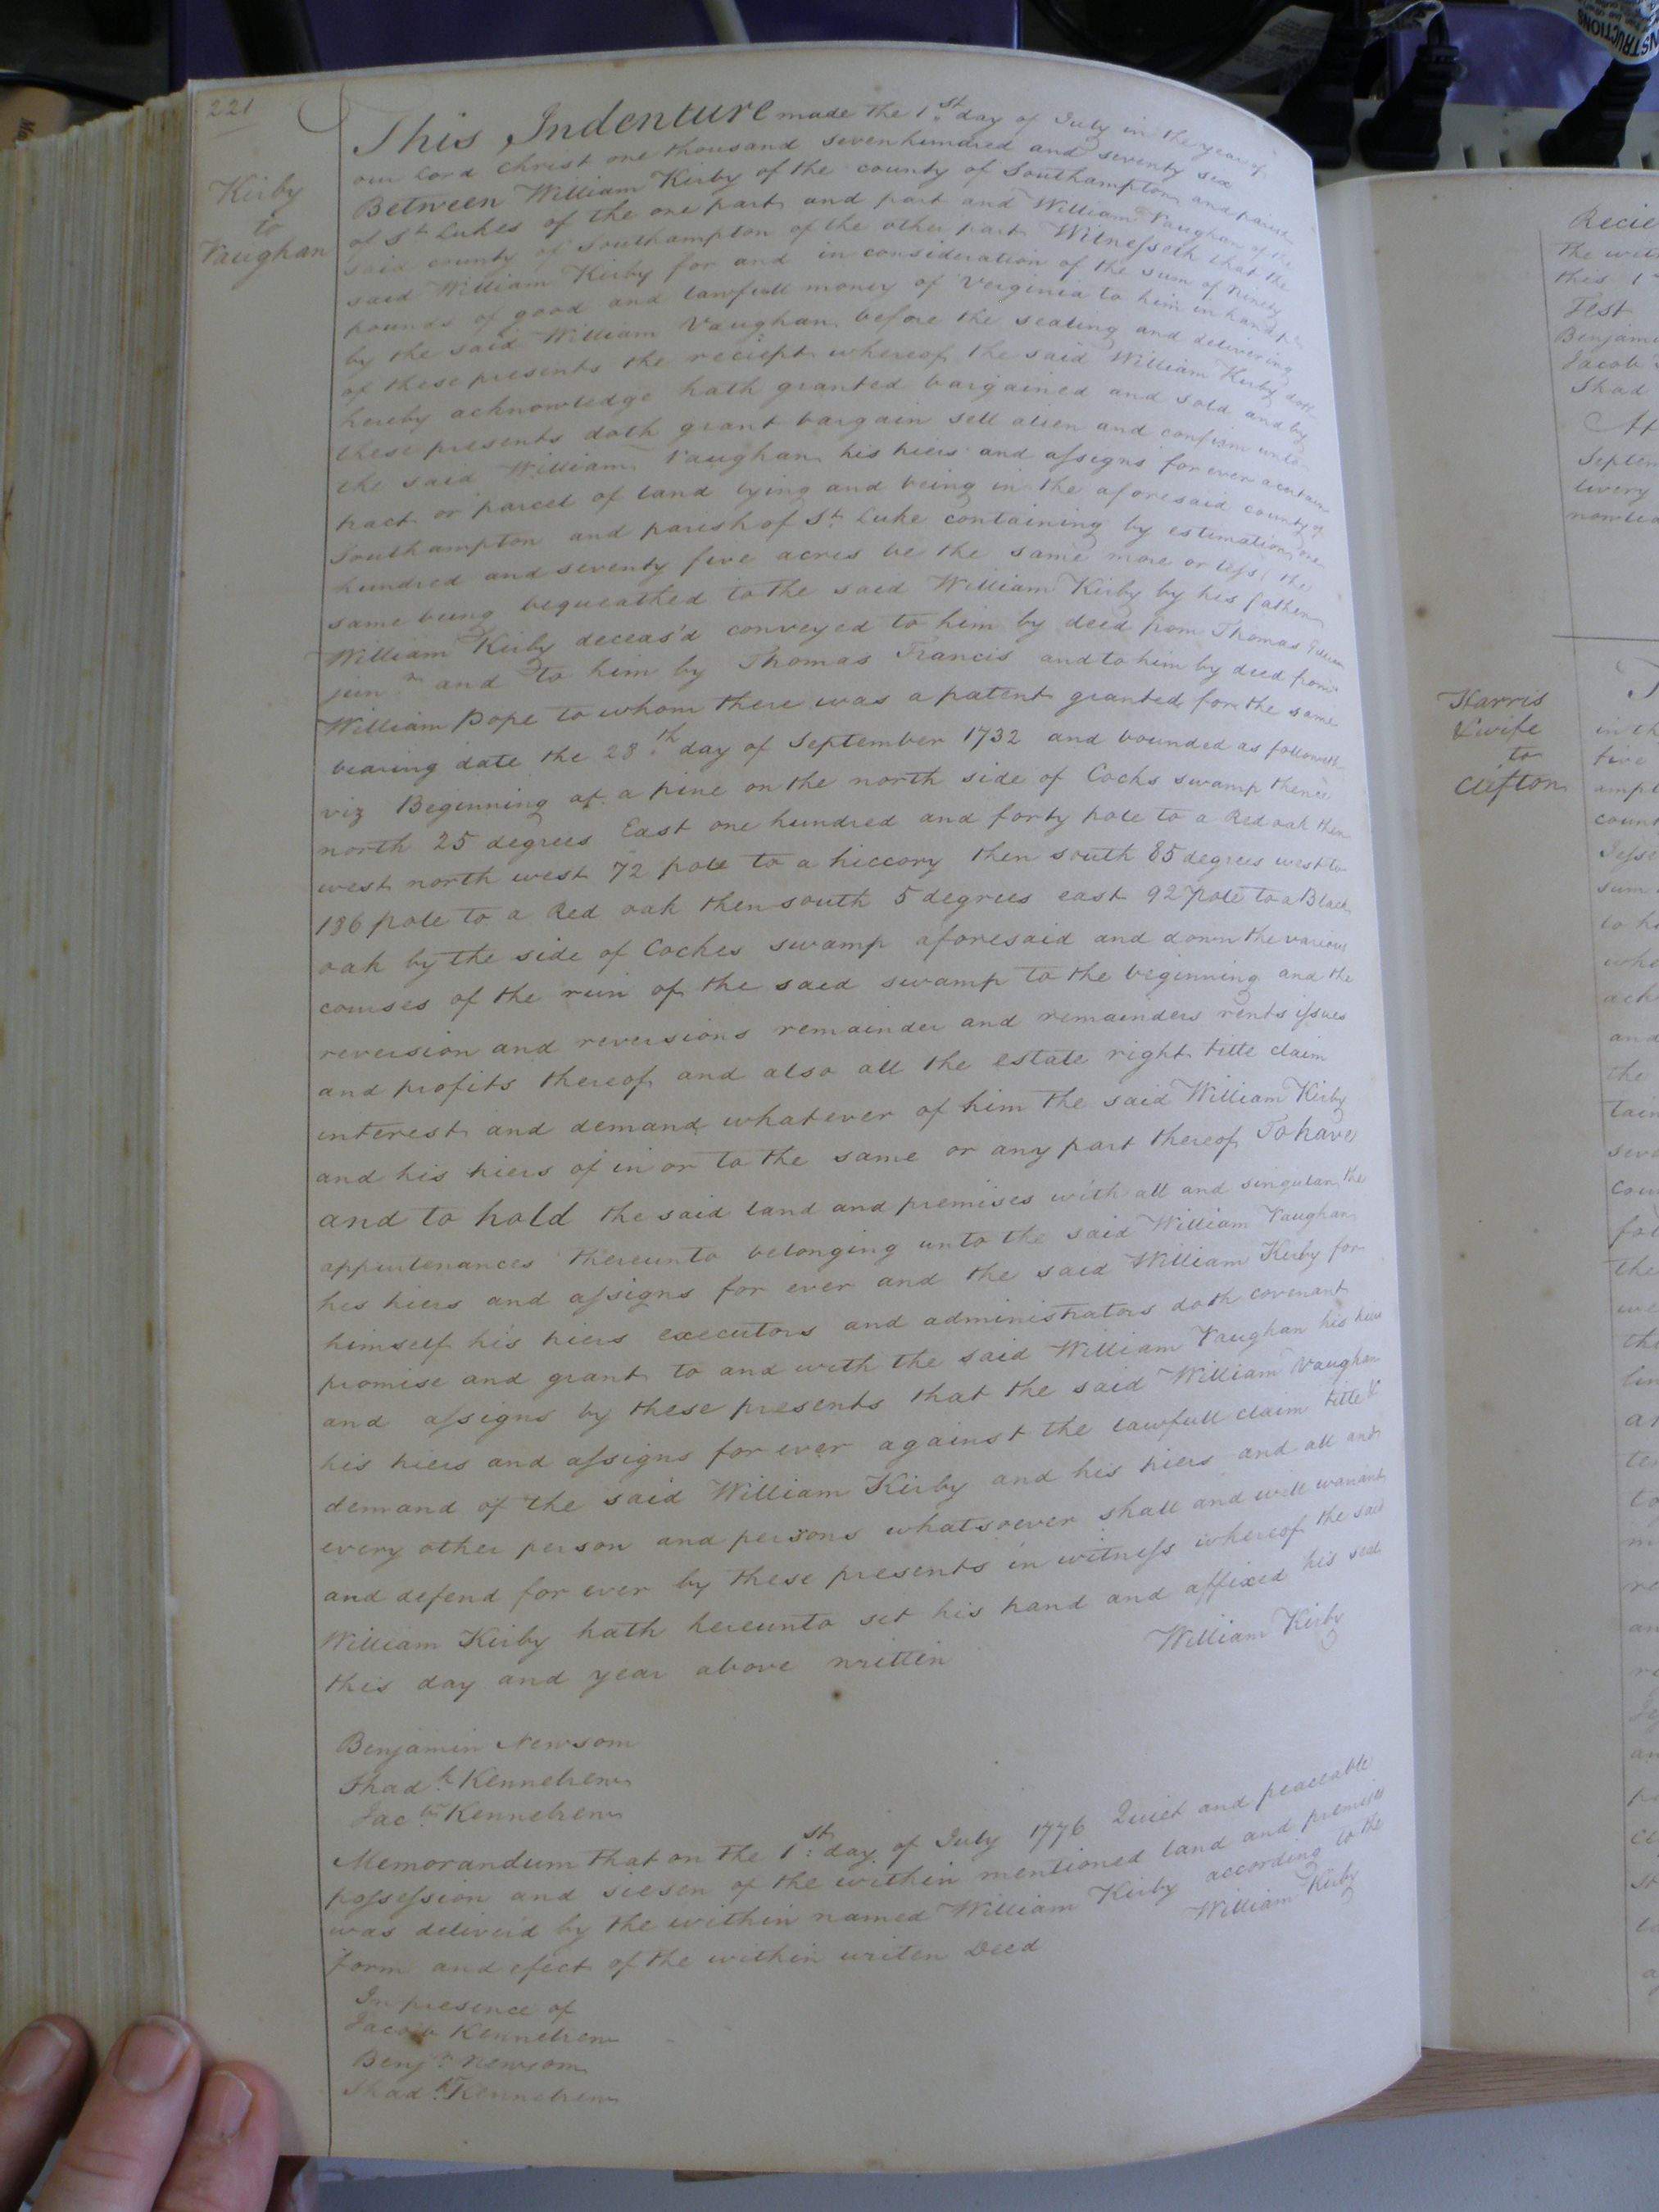 221
Kirby
to
Vaughan
This Indenture made the 1st day of July in the year of
our Lord Christ one thousand sevenhundred and seventy six
Between William Kirby of the county of Southampton and parish
of St. Lukes of the one part and part and William Vaughan of the
said county of Southampton of the other part Witnesseth that the
said William Kirby for and in consideration of the sum of ninety
pounds of good and lawfull money of Verginia to him in hand
by the said William Vaughan before the sealing and delivering
of these presents the reciept whereof the said William Kirby doth
hereby acknowledge hath granted bargained and sold and by
these presents doth grant bargain sell alien and confirm unto
the said William Vaughan his hiers and assigns for ever a certain
tract or parcel of land lying and being in the aforesaid county of
Southampton and parish of St. Luke containing by estimation one
hundred and seventy five acres be the same more or less the
same being bequeathed to the said William Kirby by his father
William Kirby deceas'd conveyed to him by deed from Thomas
junr and to him by Thomas Francis and to him by deed from
William Pope to whom there was a patent granted for the same
bearing date the 28th day of September 1732 and bounded as followeth
viz Beginning at a pine on the north side of Cocks swamp thence
north 25 degrees East one hundred and forty pole to a Red oak then
west north west 72 pole to a hiccory then south 85 degrees west to
186 pole to a Red oak then south 5 degrees east 92 pole to a Black
oak by the side of Cockes swamp aforesaid and down the various
courses of the run of the said swamp to the beginning and the
reversion and reversions remainder and remainders rents issues
and profits thereof and also all the estate right title claim
interest and demand whatever of him the said William Kirby
and his hiers of in or to the same or any part thereof To have
and to hold the said land and premises with all and singular the
appurtenances thereunto belonging unto the said William Vaughan
his hiers and assigns for ever and the said William Kirby for
himself his hiers executors and administrators doth covenant
promise and grant to and with the said William Vaughan his hiers
and assigns by these presents that the said William Vaughan
his hiers and assigns for ever against the lawfull claim title &
demand of the said William Kirby and his hiers and all and
every other person and persons whatsoever shall and will warrant
and defend for ever by these presents in witness whereof the said
William Kirby hath hereunto set his hand and affixed his seal
this day and year above written
William Kirby
Benjamin Newsom
Shadk. Kennebrew
Jacb. Kennebrew
Memorandum that on the 1st day of July 1776 Quiet and peaceable
possession and siesen of the within mentioned land and premises
was deliver'd by the within named William Kirby according to the
form and efect of the within writen Deed
William Kirby
In presence of
Jacob Kennebrew
Benjn Newsom
Shadk. Kennebrew
Recie
the wit
this 1
Test
Benjami
Jacob
Shad
At
Septem
livery
nowled
Harris
& wife
to
Clifton
in th
five
ampt
count
Jesse
sum
to hi
whe
ack
and
the
tain
seve
cou
fol
the